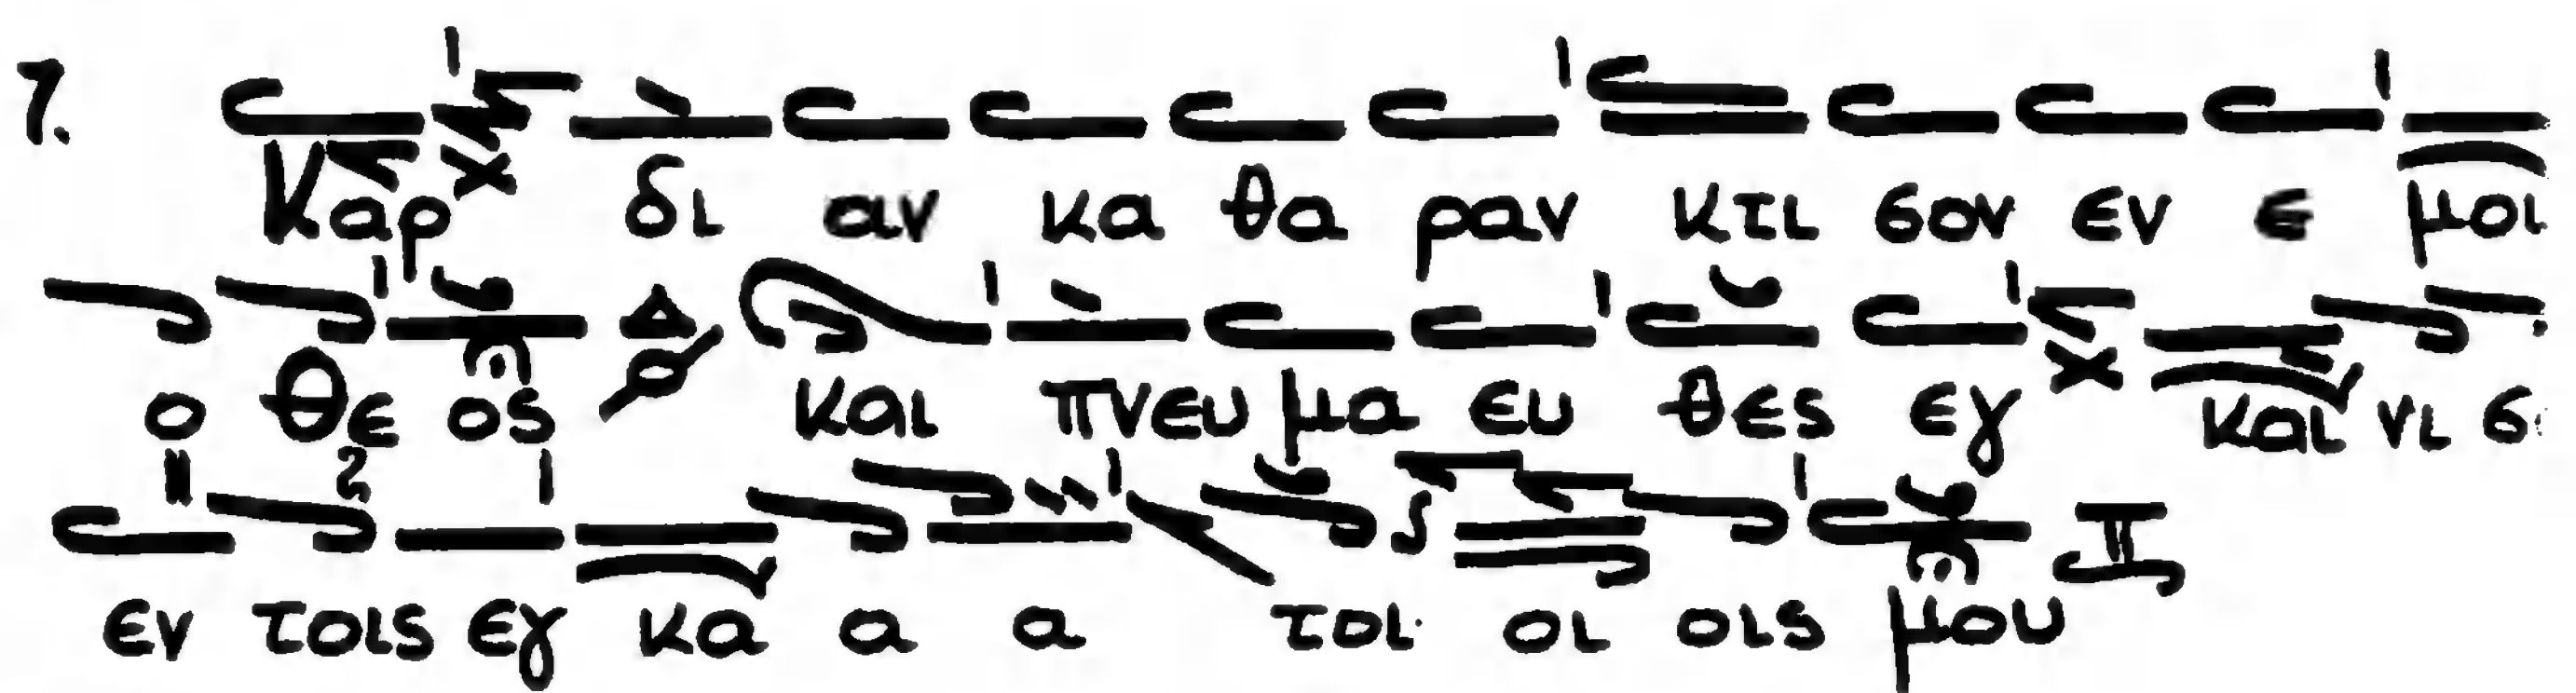 7. Καρ δι αν κα θα ραν κτι σον εν ε μοι
ο Θε ος Δ και πνευ μα ευ θες εγ και νι σ
εν τοις εγ κα α α τοι οι οις μου